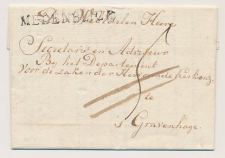 MEDENBLIK
Heere
Secretaris en Adviseur
Bij het Departement
Voor de Zaken der Hervormde Kerk enz.
te
s Gravenhage.